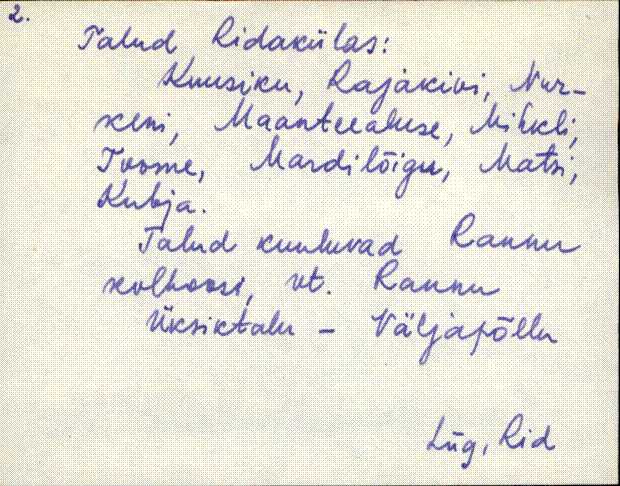 2.
Talud Ridakülas:
Kuusiku, Rajakivi, Nur-
keni, Maanteealuse, Mihkli,
Toome, Mardilõigu, Matsi,
Kubja.
Talud kuuluvad Rannu
kolhoosi, vt. Rannu
Üksiktalu – Väljapõllu
Lüg, Rid